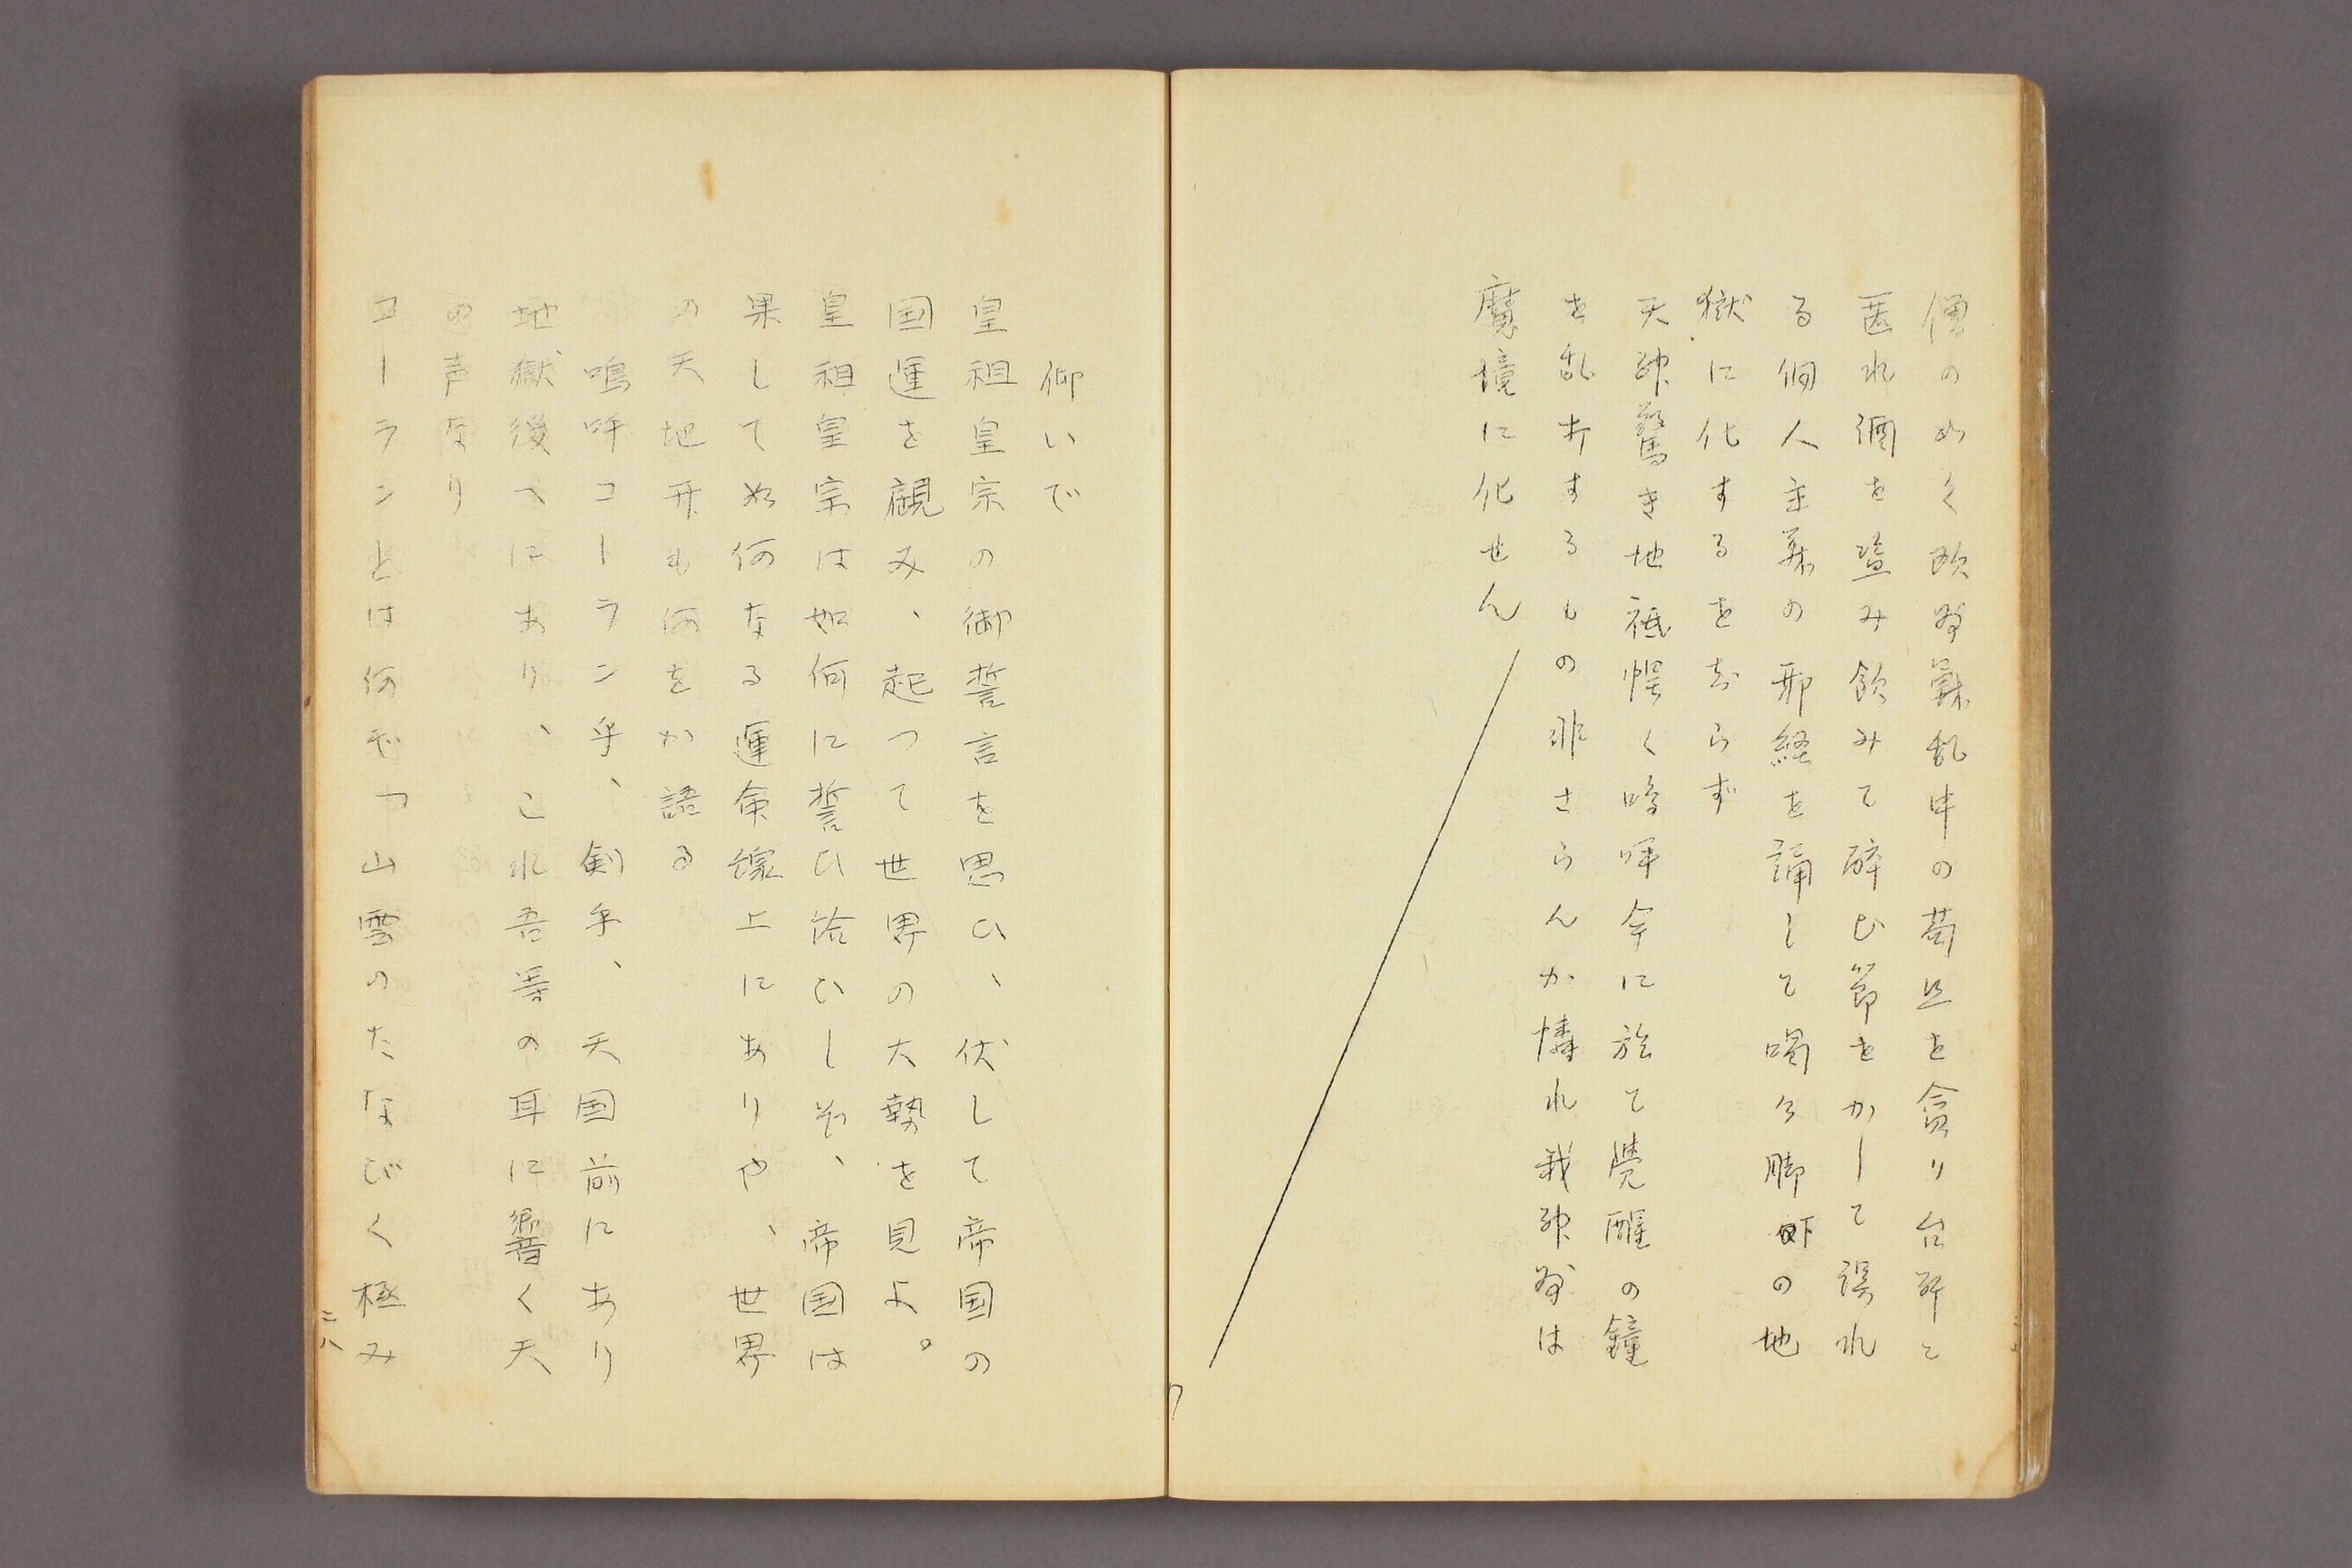 僧の如く欧努蘇乱中の苟且を貪り台辞と
匿れ酒を盗み飲みて酔ひ節をかして誤れ
る個人主義の邪経を誦して喝々脚下の地
獄に化するを知らず
天神驚き地祇愕く嗚呼今に於て覚醒の鐘
を乱打するもの非さらんか憐れ我神努は
魔境に化せん
仰いで
皇祖皇宗の御誓言を思ひ、伏して帝国の
国運を観み、起つて世界の大勢を見よ。
皇祖皇宗は如何に誓ひ給ひしぞ、帝国は
果して如何なる運命線上にありや、世界
の天地开も何をか語る
嗚呼コーラン乎、剣乎、天国前にあり
地獄後へにあり、これ吾等の耳に響く天
の声なり
コーランとは何ぞ「山雲のたなびく極み
二八